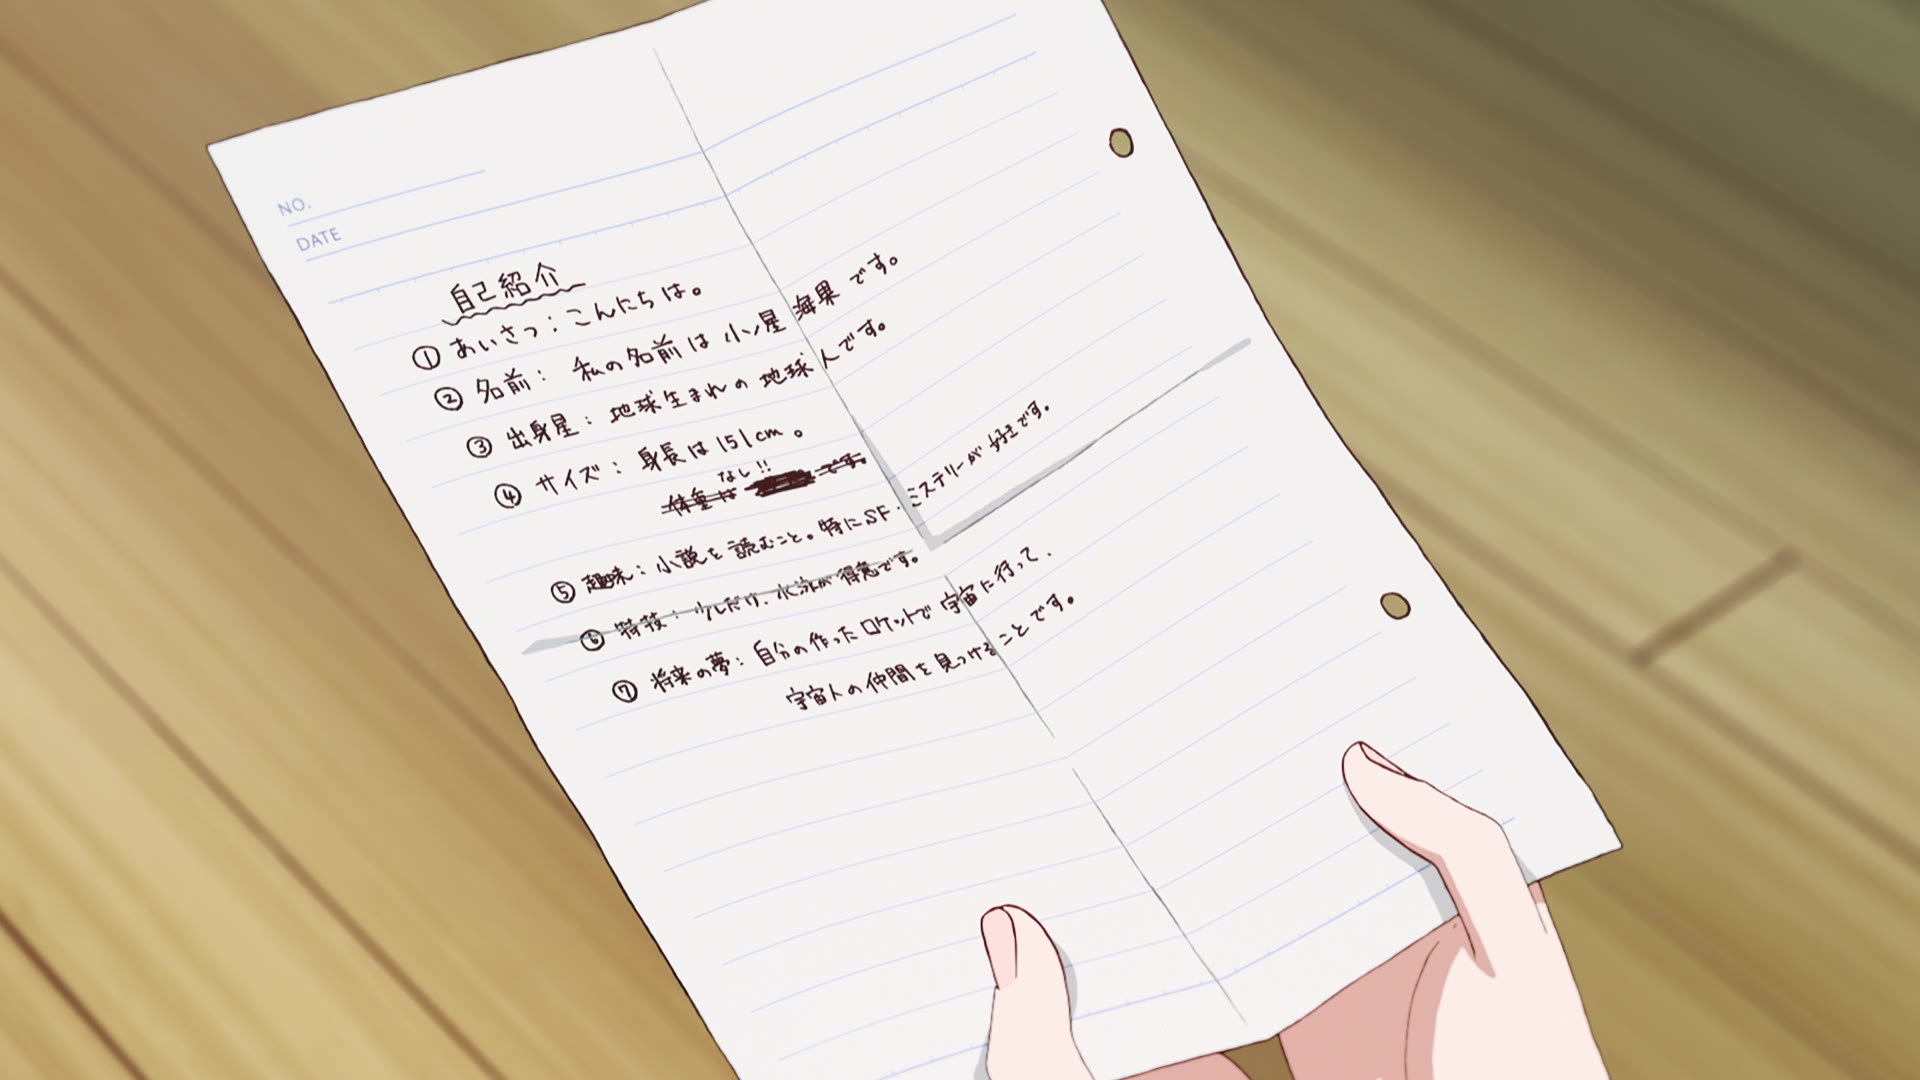 NO.
DATE
自己紹介
① あいさつ：こんにちは。
② 名前： 私の名前は小ノ星 海果です。
③ 出身星： 地球生まれの地球人です。
④ サイズ： 身長は151cm。
なし!!
体重は です。
⑤ 趣味：小説を読むこと。特にSF・ミステリーが好きです。
⑥ 特技：少しだけ、水泳が得意です。
⑦ 将来の夢：自分の作ったロケットで宇宙に行って、
宇宙人の仲間を見つけることです。